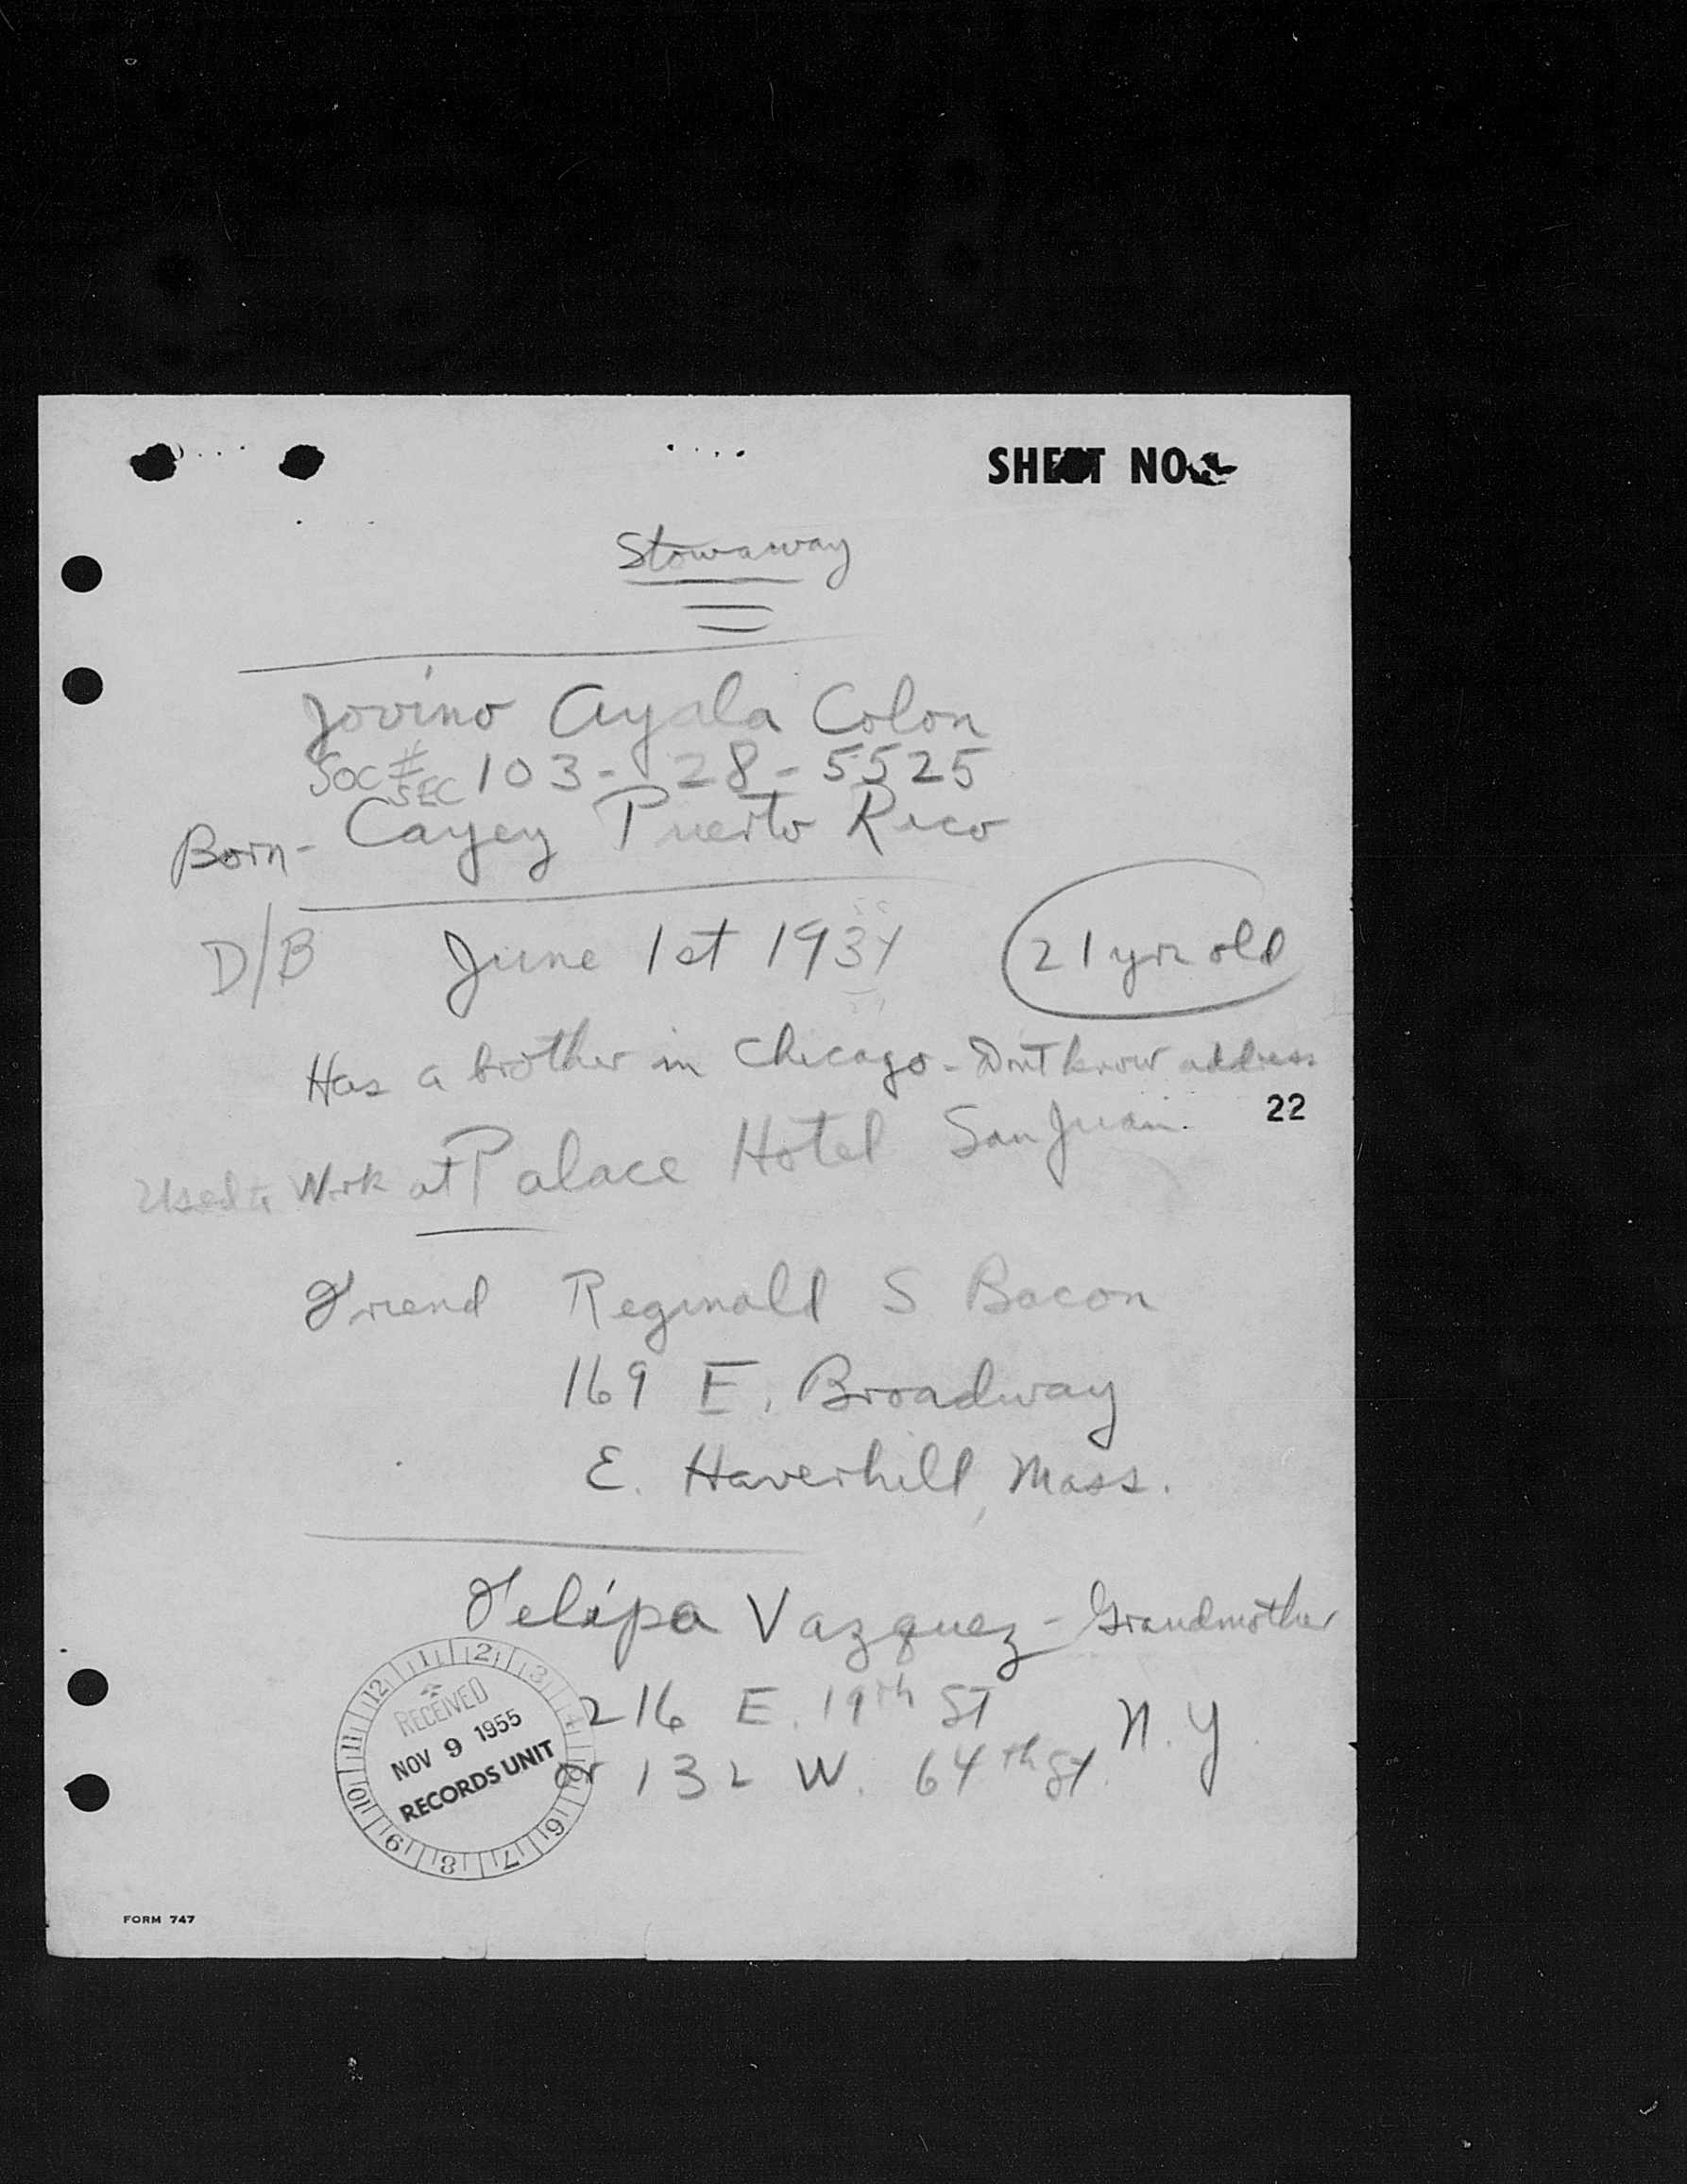 SHEET NO.
Stowaway
Jovino Ayala Colon
Soc Sec # 103-28-5525
Born- Cayey Puerto Rico
D/B June 1st 1934 21 yrs old
Has a brother in Chicago - Don't know address
22
Used to Work at Palace Hotel San Juan.
Friend Reginald S Bacon
169 E. Broadway
E. Haverhill, Mass.
Felipa Vazquez - Grandmother
216 E. 19th ST
or 132 W. 64th St. N.Y.
12 1 2 3 4 5 6 7 8 9 10 11
RECEIVED
NOV 9 1955
RECORDS UNIT
FORM 747